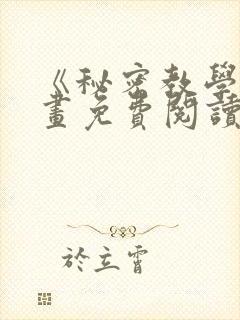 《秘密教學
畫免費閱讀
於立霄